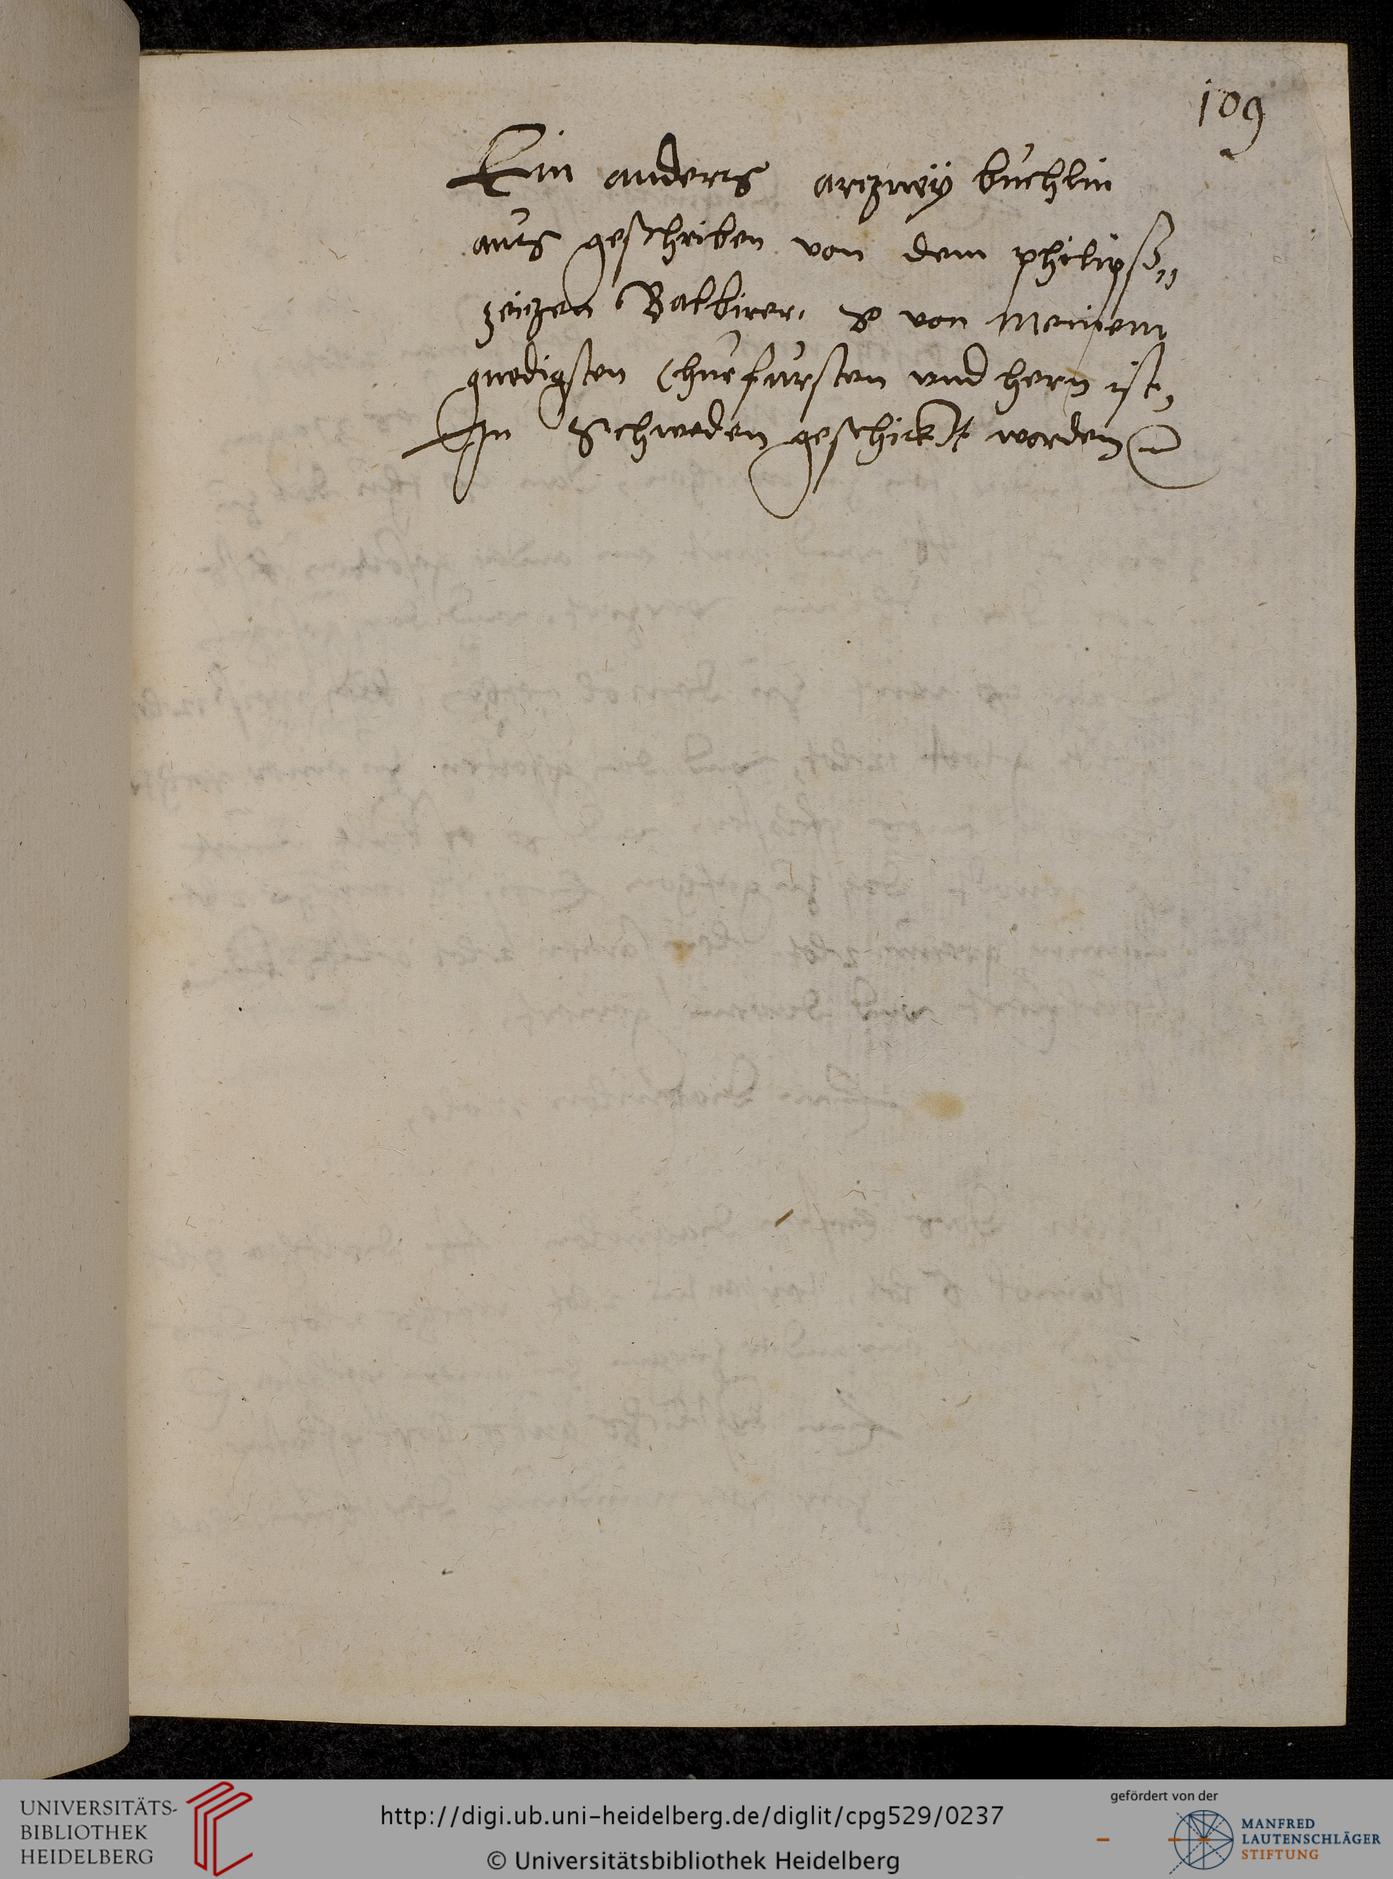 109
Ein anders artzney buchlin
aus geschriben von dem philips„
zeitzen Balbirer, so von Meinem
gnedigsten Churfursten und hern ist,
In Schweden geschickt worden
UNIVERSITÄTS-
BIBLIOTHEK
HEIDELBERG
http://digi.ub.uni-heidelberg.de/diglit/cpg529/0237
© Universitätsbibliothek Heidelberg
gefördert von der
MANFRED
LAUTENSCHLÄGER
STIFTUNG